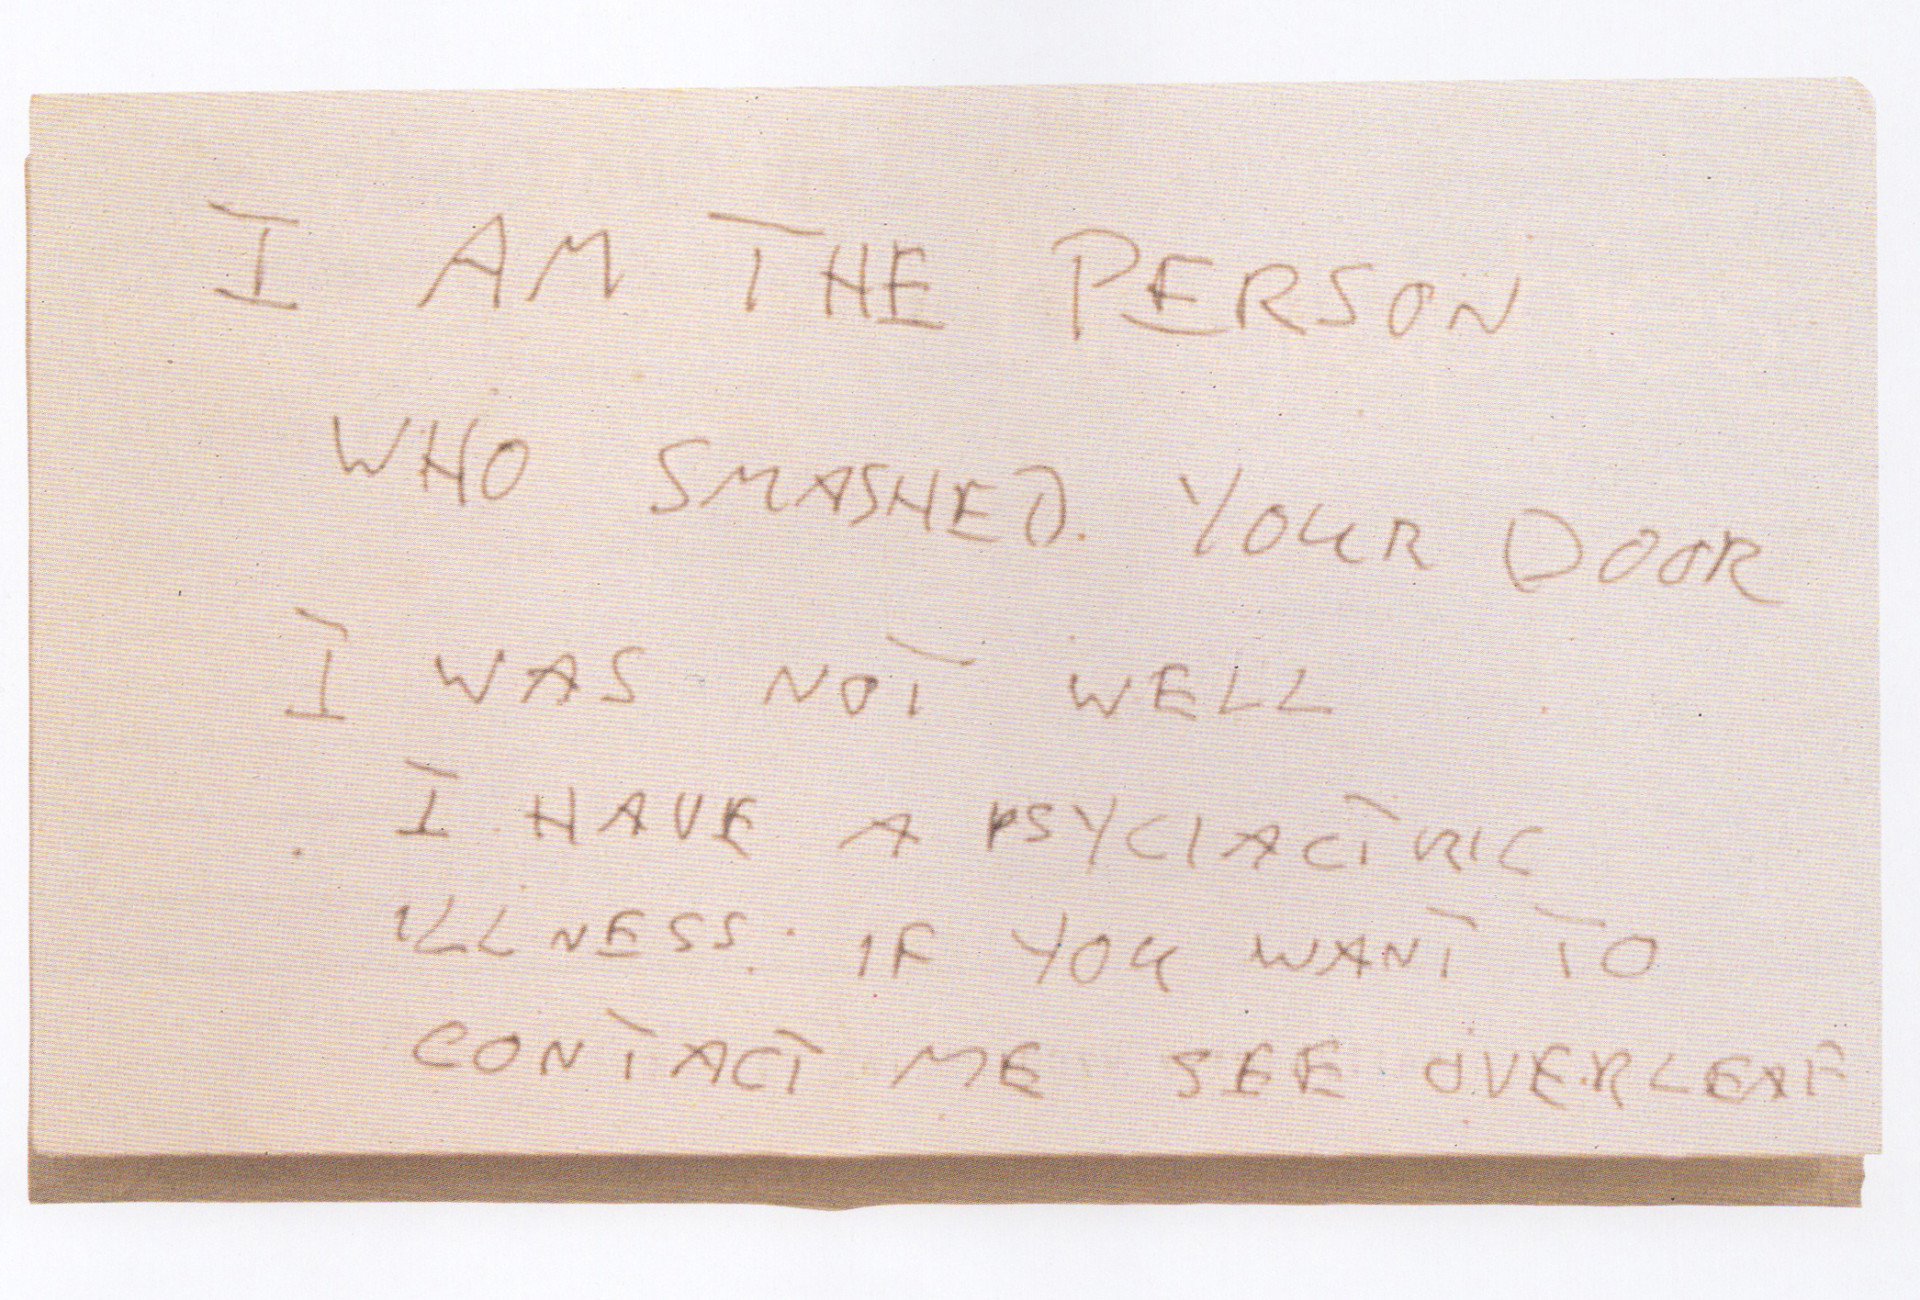 I AM THE PERSON
WHO SMASHED. YOUR DOOR
I WAS NOT WELL
I HAVE A PSYCIACTRIC
ILLNESS. IF YOU WANT TO
CONTACT ME SEE OVERLEAF